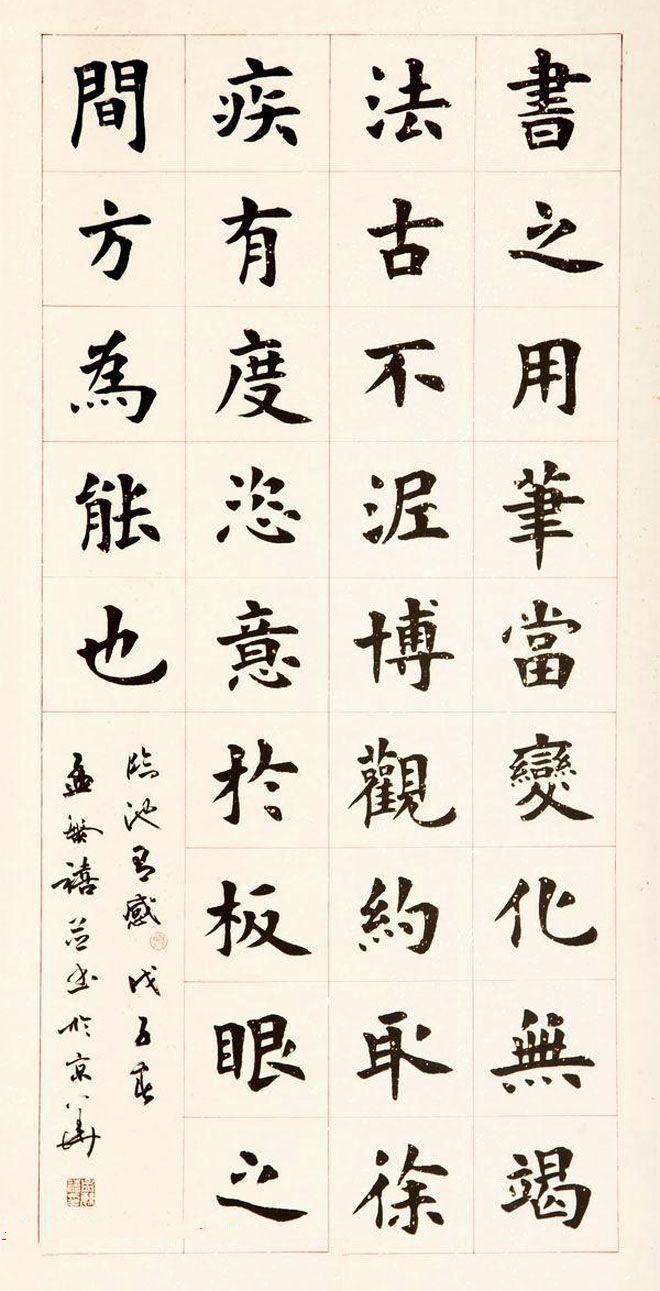 書之用筆當變化無竭
法古不泥博觀約取徐
疾有度恣意於板眼之
間方為能也
臨池有感 戊子春
孟繁禧並書於京華